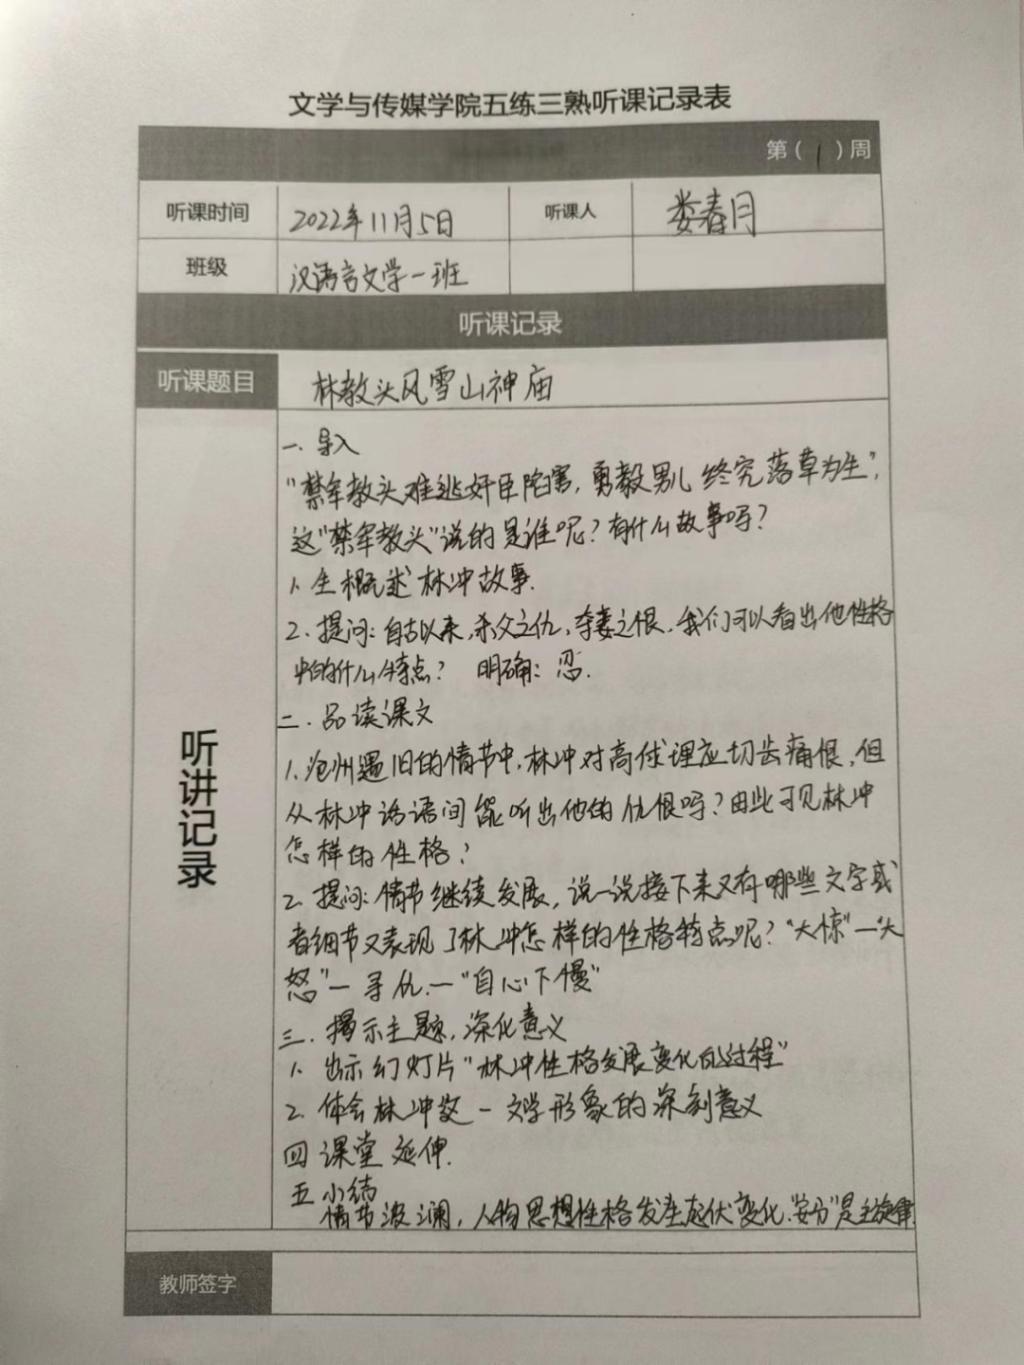 文学与传媒学院五练三熟听课记录表
第（1）周
听课时间 2022年11月5日 听课人 娄春月
班级 汉语言文学一班
听课记录
听课题目 林教头风雪山神庙
听讲记录
一．导入
“禁军教头难逃奸臣陷害，勇毅男儿终究落草为生”，
这“禁军教头”说的是谁呢？有什么故事吗？
1. 生概述林冲故事.
2. 提问：自古以来，杀父之仇，夺妻之恨，我们可以看出他性格
中的什么特点？ 明确：忍.
二．品读课文
1. 沧州遇旧的情节中，林冲对高俅理应切齿痛恨，但
从林冲话语间能听出他的仇恨吗？由此可见林冲
怎样的性格？
2. 提问：情节继续发展，说一说接下来又有哪些文字或
者细节又表现了林冲怎样的性格特点呢？“大惊”—“大
怒”—寻仇—“自心下慢”
三．揭示主题，深化意义
1. 出示幻灯片“林冲性格发展变化的过程”
2. 体会林冲这一文学形象的深刻意义
四 课堂延伸.
五 小结
情节波澜，人物思想性格发生起伏变化.“安分”是主旋律
教师签字